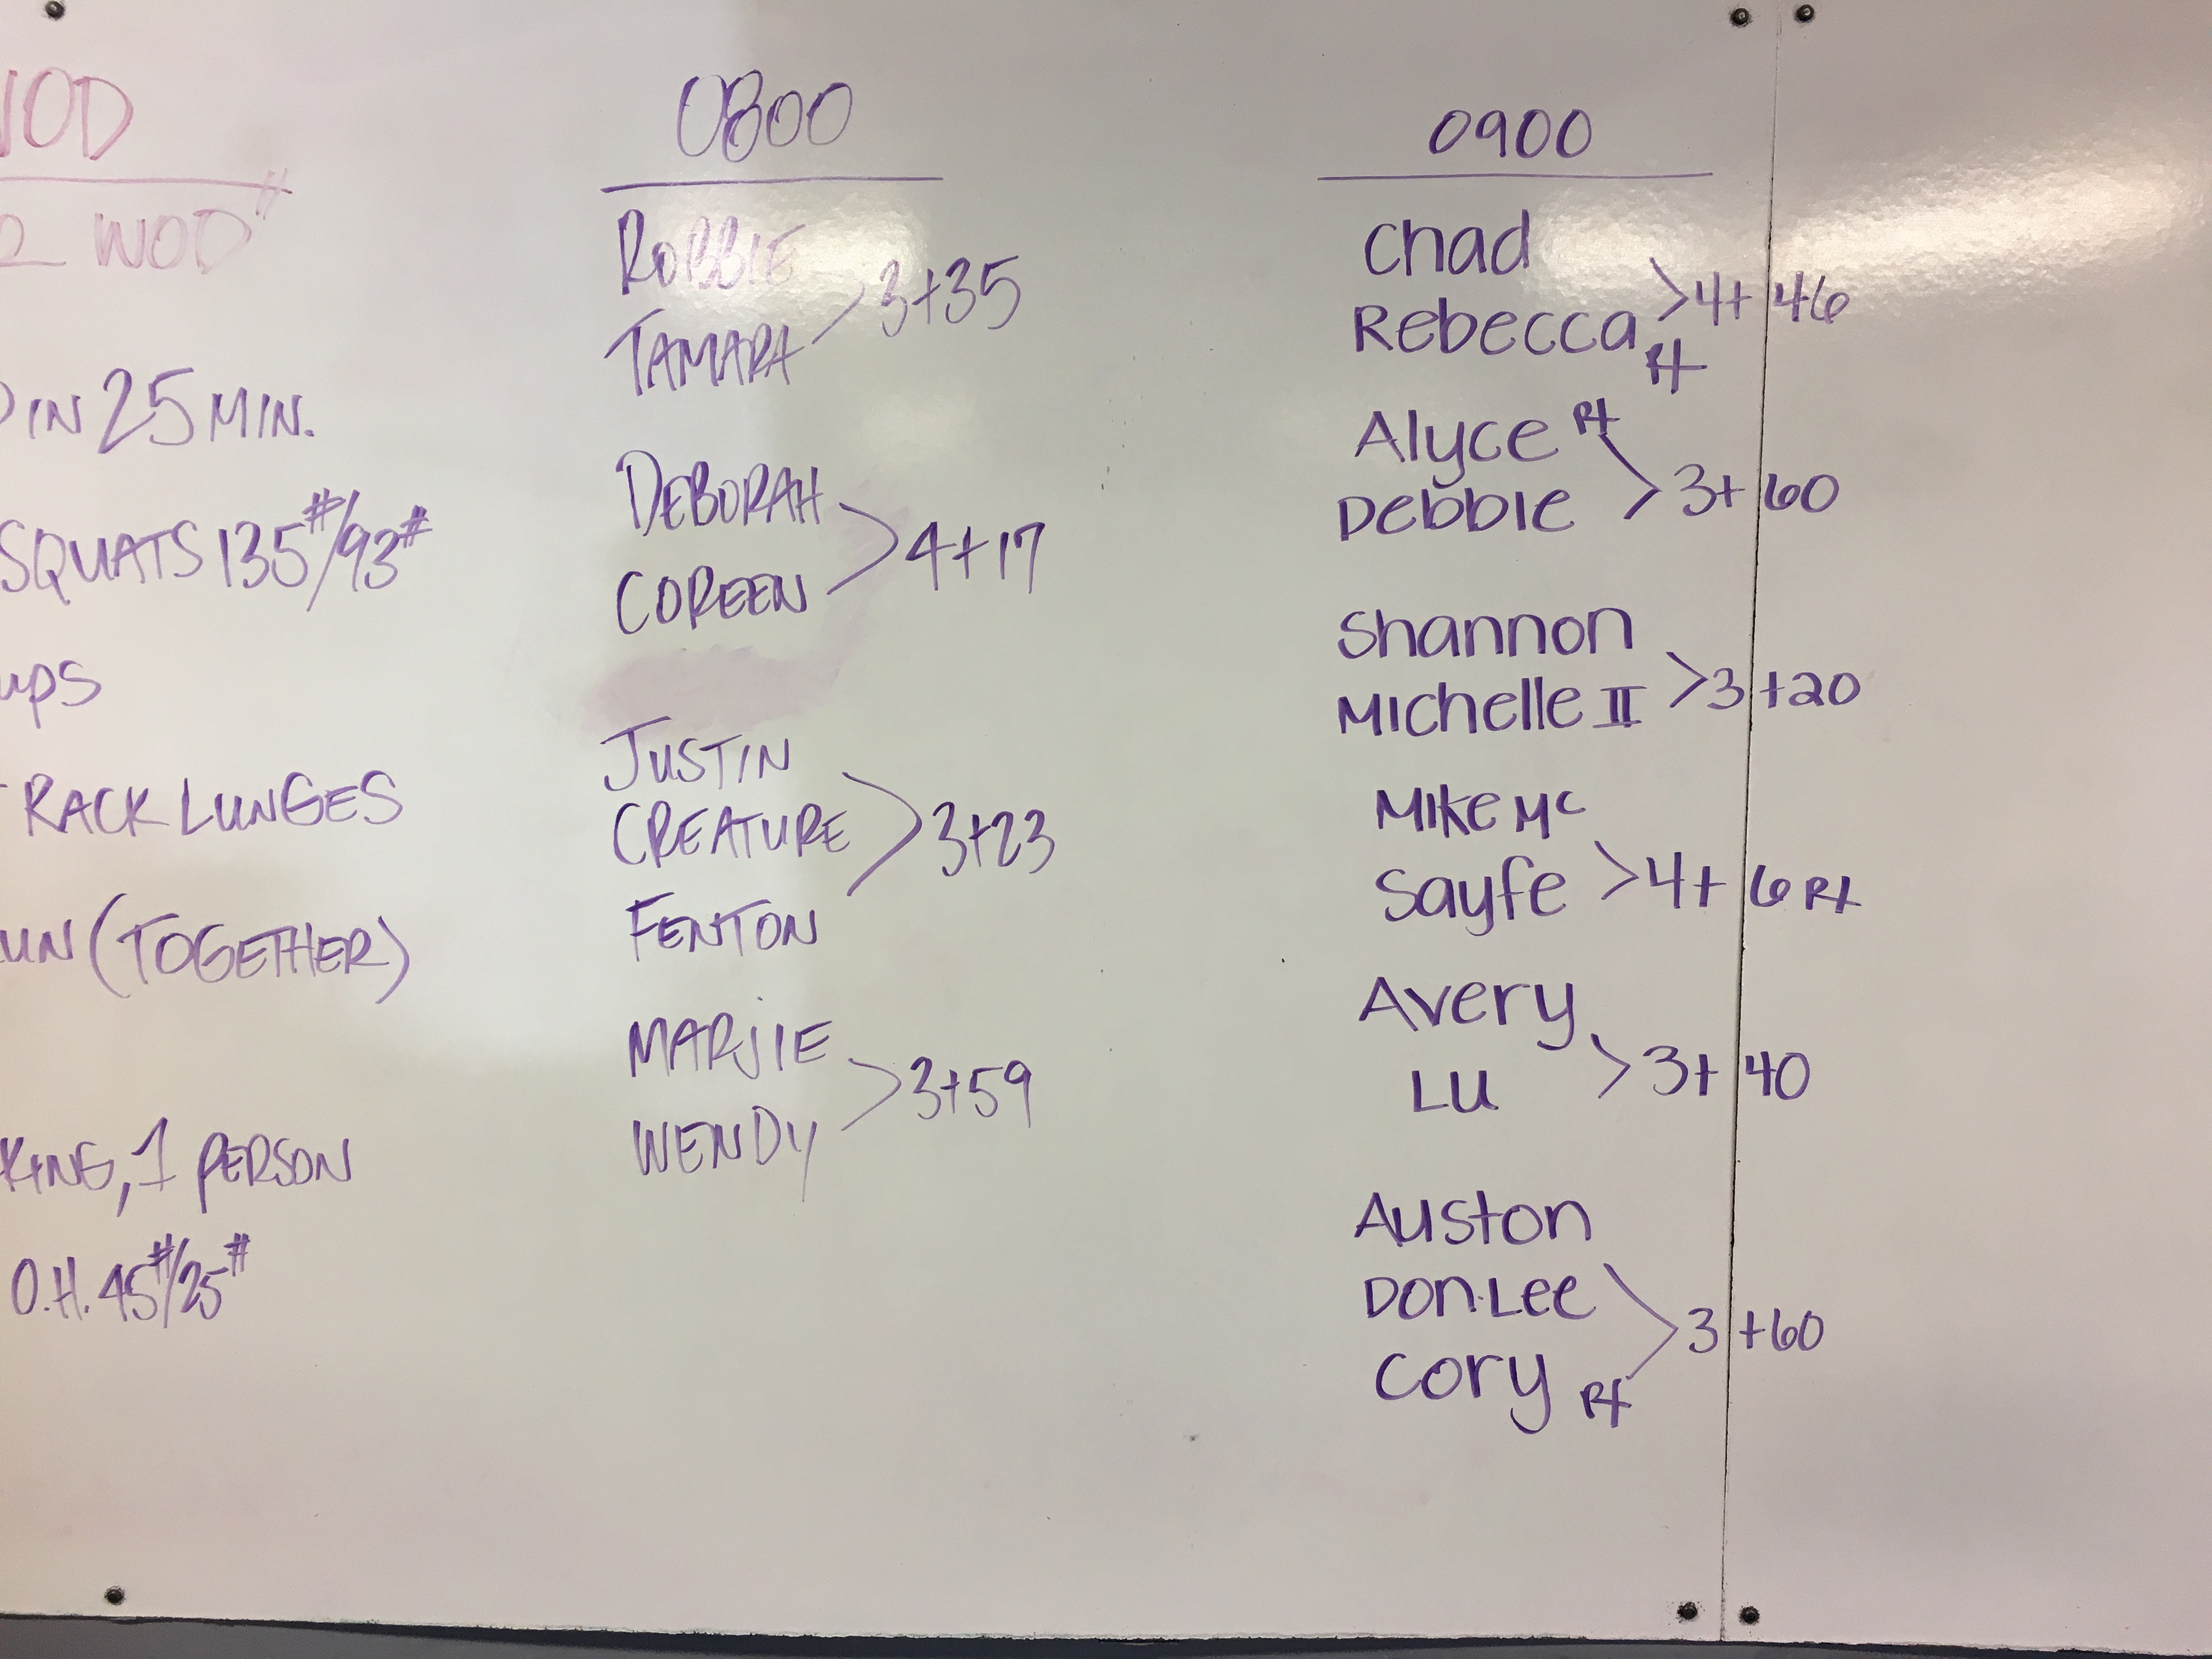 WOD
2 WOD"
IN 25 MIN.
SQUATS 135#/93#
ups
RACK LUNGES
UN (TOGETHER)
KING, 1 PERSON
O.H. 45#/25#
0800
ROBBIE
TAMARA > 3+35
DEBORAH
COREEN > 4+17
JUSTIN
CREATURE > 3+23
FENTON
MARJIE
WENDY > 3+59
0900
Chad
Rebecca Rx > 4+46
Alyce Rx
Debbie > 3+60
Shannon
Michelle II > 3+20
Mike Mc
Sayfe > 4+6 Rx
Avery
Lu > 3+40
Auston
Don Lee > 3+60
Cory Rx